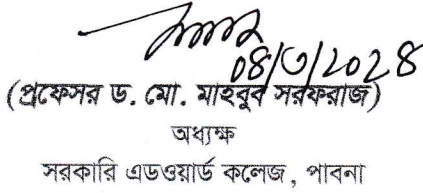 ০৪/৩/২০২৪
(প্রফেসর ড. মো. মাহবুব সরফরাজ)
অধ্যক্ষ
সরকারি এডওয়ার্ড কলেজ, পাবনা